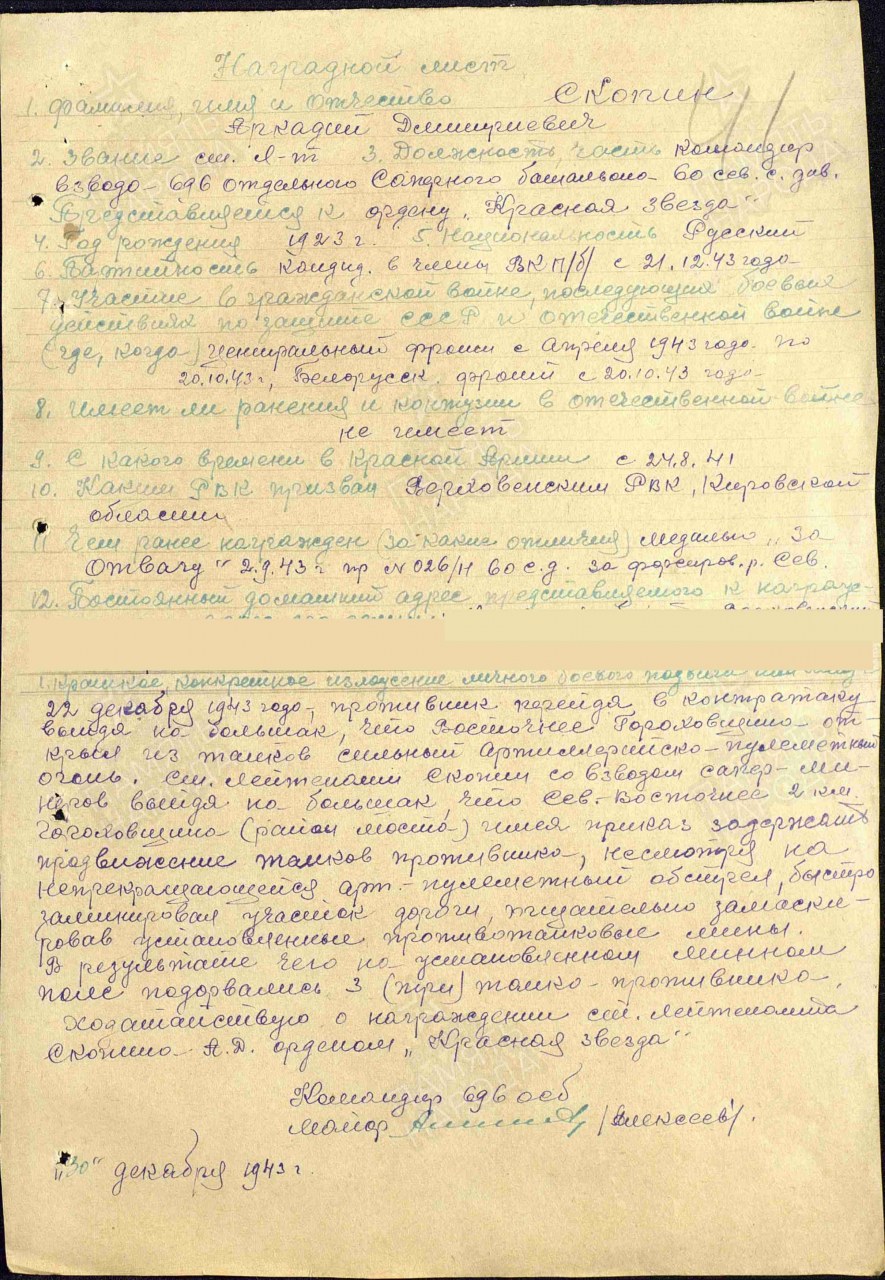 Наградной лист
1. Фамилия, имя и отчество Скопин
Аркадий Дмитриевич
2. Звание ст. л-т 3. Должность, часть командир
взвода 696 отдельного Саперного батальона 60 сев. с. див.
Представляется к ордену „Красная Звезда"
4. Год рождения 1923 г. 5. Национальность Русский
6. Партийность Кандид. в члены ВКП/б/ с 21.12.43 года
7. Участие в гражданской войне, последующих боевых
действиях по защите СССР и отечественной войне
(где, когда) Центральный фронт с апреля 1943 года по
20.10.43 г., Белорусск. фронт с 20.10.43 года
8. Имеет ли ранения и контузии в отечественной войне
не имеет
9. С какого времени в Красной Армии с 24.8.41
10. Каким РВК призван Верховенским РВК, Кировской
области
11 Чем ранее награжден (за какие отличия) медалью „За
Отвагу" 2.9.43 г пр № 026/н 60 с.д. за форсиров. р. Сев.
12. Постоянный домашний адрес представляемого к награж-
1. Краткое, конкретное изложение личного боевого подвига или
22 декабря 1943 года, противник перейдя в контратаку
выйдя на большак, что Восточнее Гороховщина от-
крыл из танков сильный артиллерийско-пулеметный
огонь. Ст. Лейтенант Скопин со взводом сапер-ми-
неров выйдя на большак, что Сев.-Восточнее 2 клм.
Гороховщина (район моста) имея приказ задержать
продвижение танков противника, несмотря на
непрекращающейся арт.-пулеметный обстрел, быстро
заминировал участок дороги, тщательно замаски-
ровав установленные противотанковые мины.
В результате чего на установленном минном
поле подорвались 3 (три) танка противника.
Ходатайствую о награждении ст. Лейтенанта
Скопина А.Д. орденом „Красная звезда"
Командир 696 осб
майор /Алексеев/.
„30" декабря 1943 г.